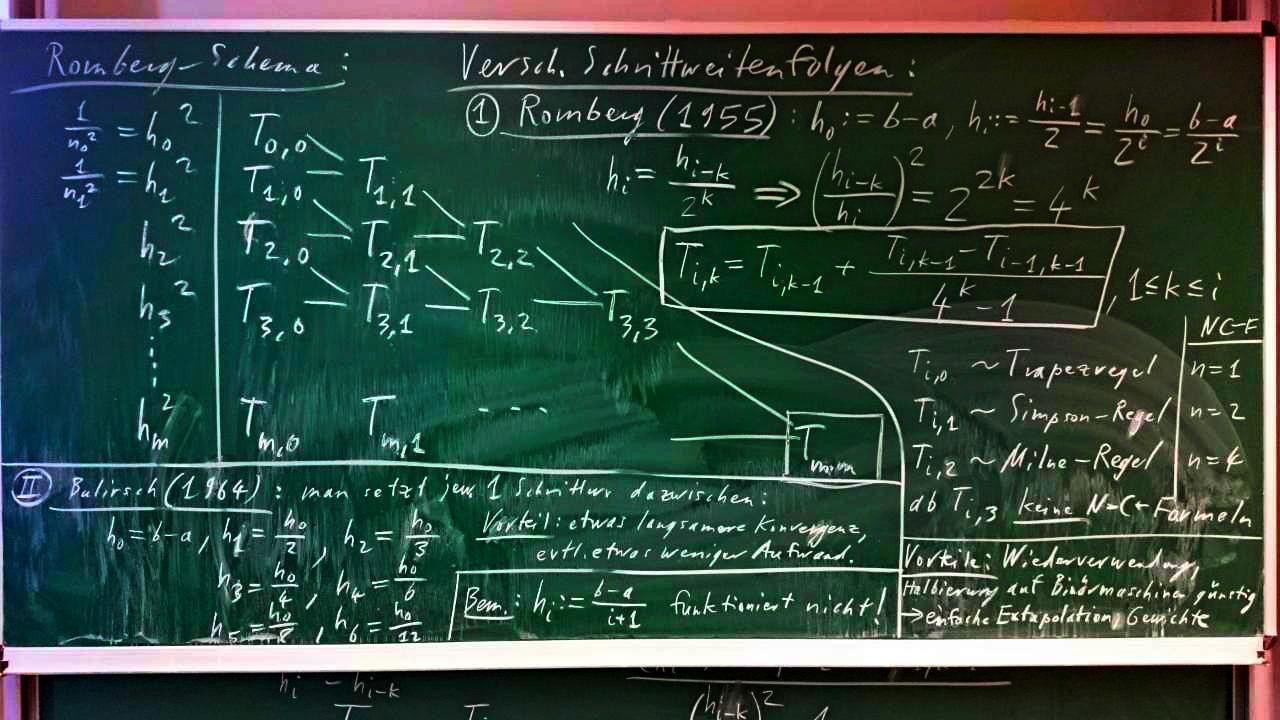 Romberg-Schema:
1/n₀² = h₀² T₀,₀
1/n₁² = h₁² T₁,₀ T₁,₁
h₂² T₂,₀ T₂,₁ T₂,₂
h₃² T₃,₀ T₃,₁ T₃,₂ T₃,₃
hₘ² Tₘ,₀ Tₘ,₁ ---- Tₘ,ₘ
Versch. Schrittweitenfolgen:
① Romberg (1955): h₀ := b-a, hᵢ := hᵢ₋₁/2 = h₀/2ⁱ = b-a/2ⁱ
hᵢ = hᵢ₋ₖ/2ᵏ ⇒ (hᵢ₋ₖ/hᵢ)² = 2²ᵏ = 4ᵏ
Tᵢ,ₖ = Tᵢ,ₖ₋₁ + (Tᵢ,ₖ₋₁ - Tᵢ₋₁,ₖ₋₁)/(4ᵏ - 1), 1 ≤ k ≤ i
NC-F
Tᵢ,₀ ~ Trapezregel n=1
Tᵢ,₁ ~ Simpson-Regel n=2
Tᵢ,₂ ~ Milne-Regel n=4
ab Tᵢ,₃ keine N-C-Formeln
Vorteile: Wiederverwendung,
Halbierung auf Binärmaschinen günstig
→ einfache Extapolation, Gewichte
Ⅱ Bulirsch (1964): man setzt jew. 1 Schrittw. dazwischen:
h₀ = b-a, h₁ = h₀/2, h₂ = h₀/3
h₃ = h₀/4, h₄ = h₀/6
h₅ = h₀/8, h₆ = h₀/12
Vorteil: etwas langsamere Konvergenz,
evtl. etwas weniger Aufwand.
Bem.: hᵢ := b-a/i+1 funktioniert nicht!
hᵢ - hᵢ₋ₖ
(hᵢ₋ₖ)² 1